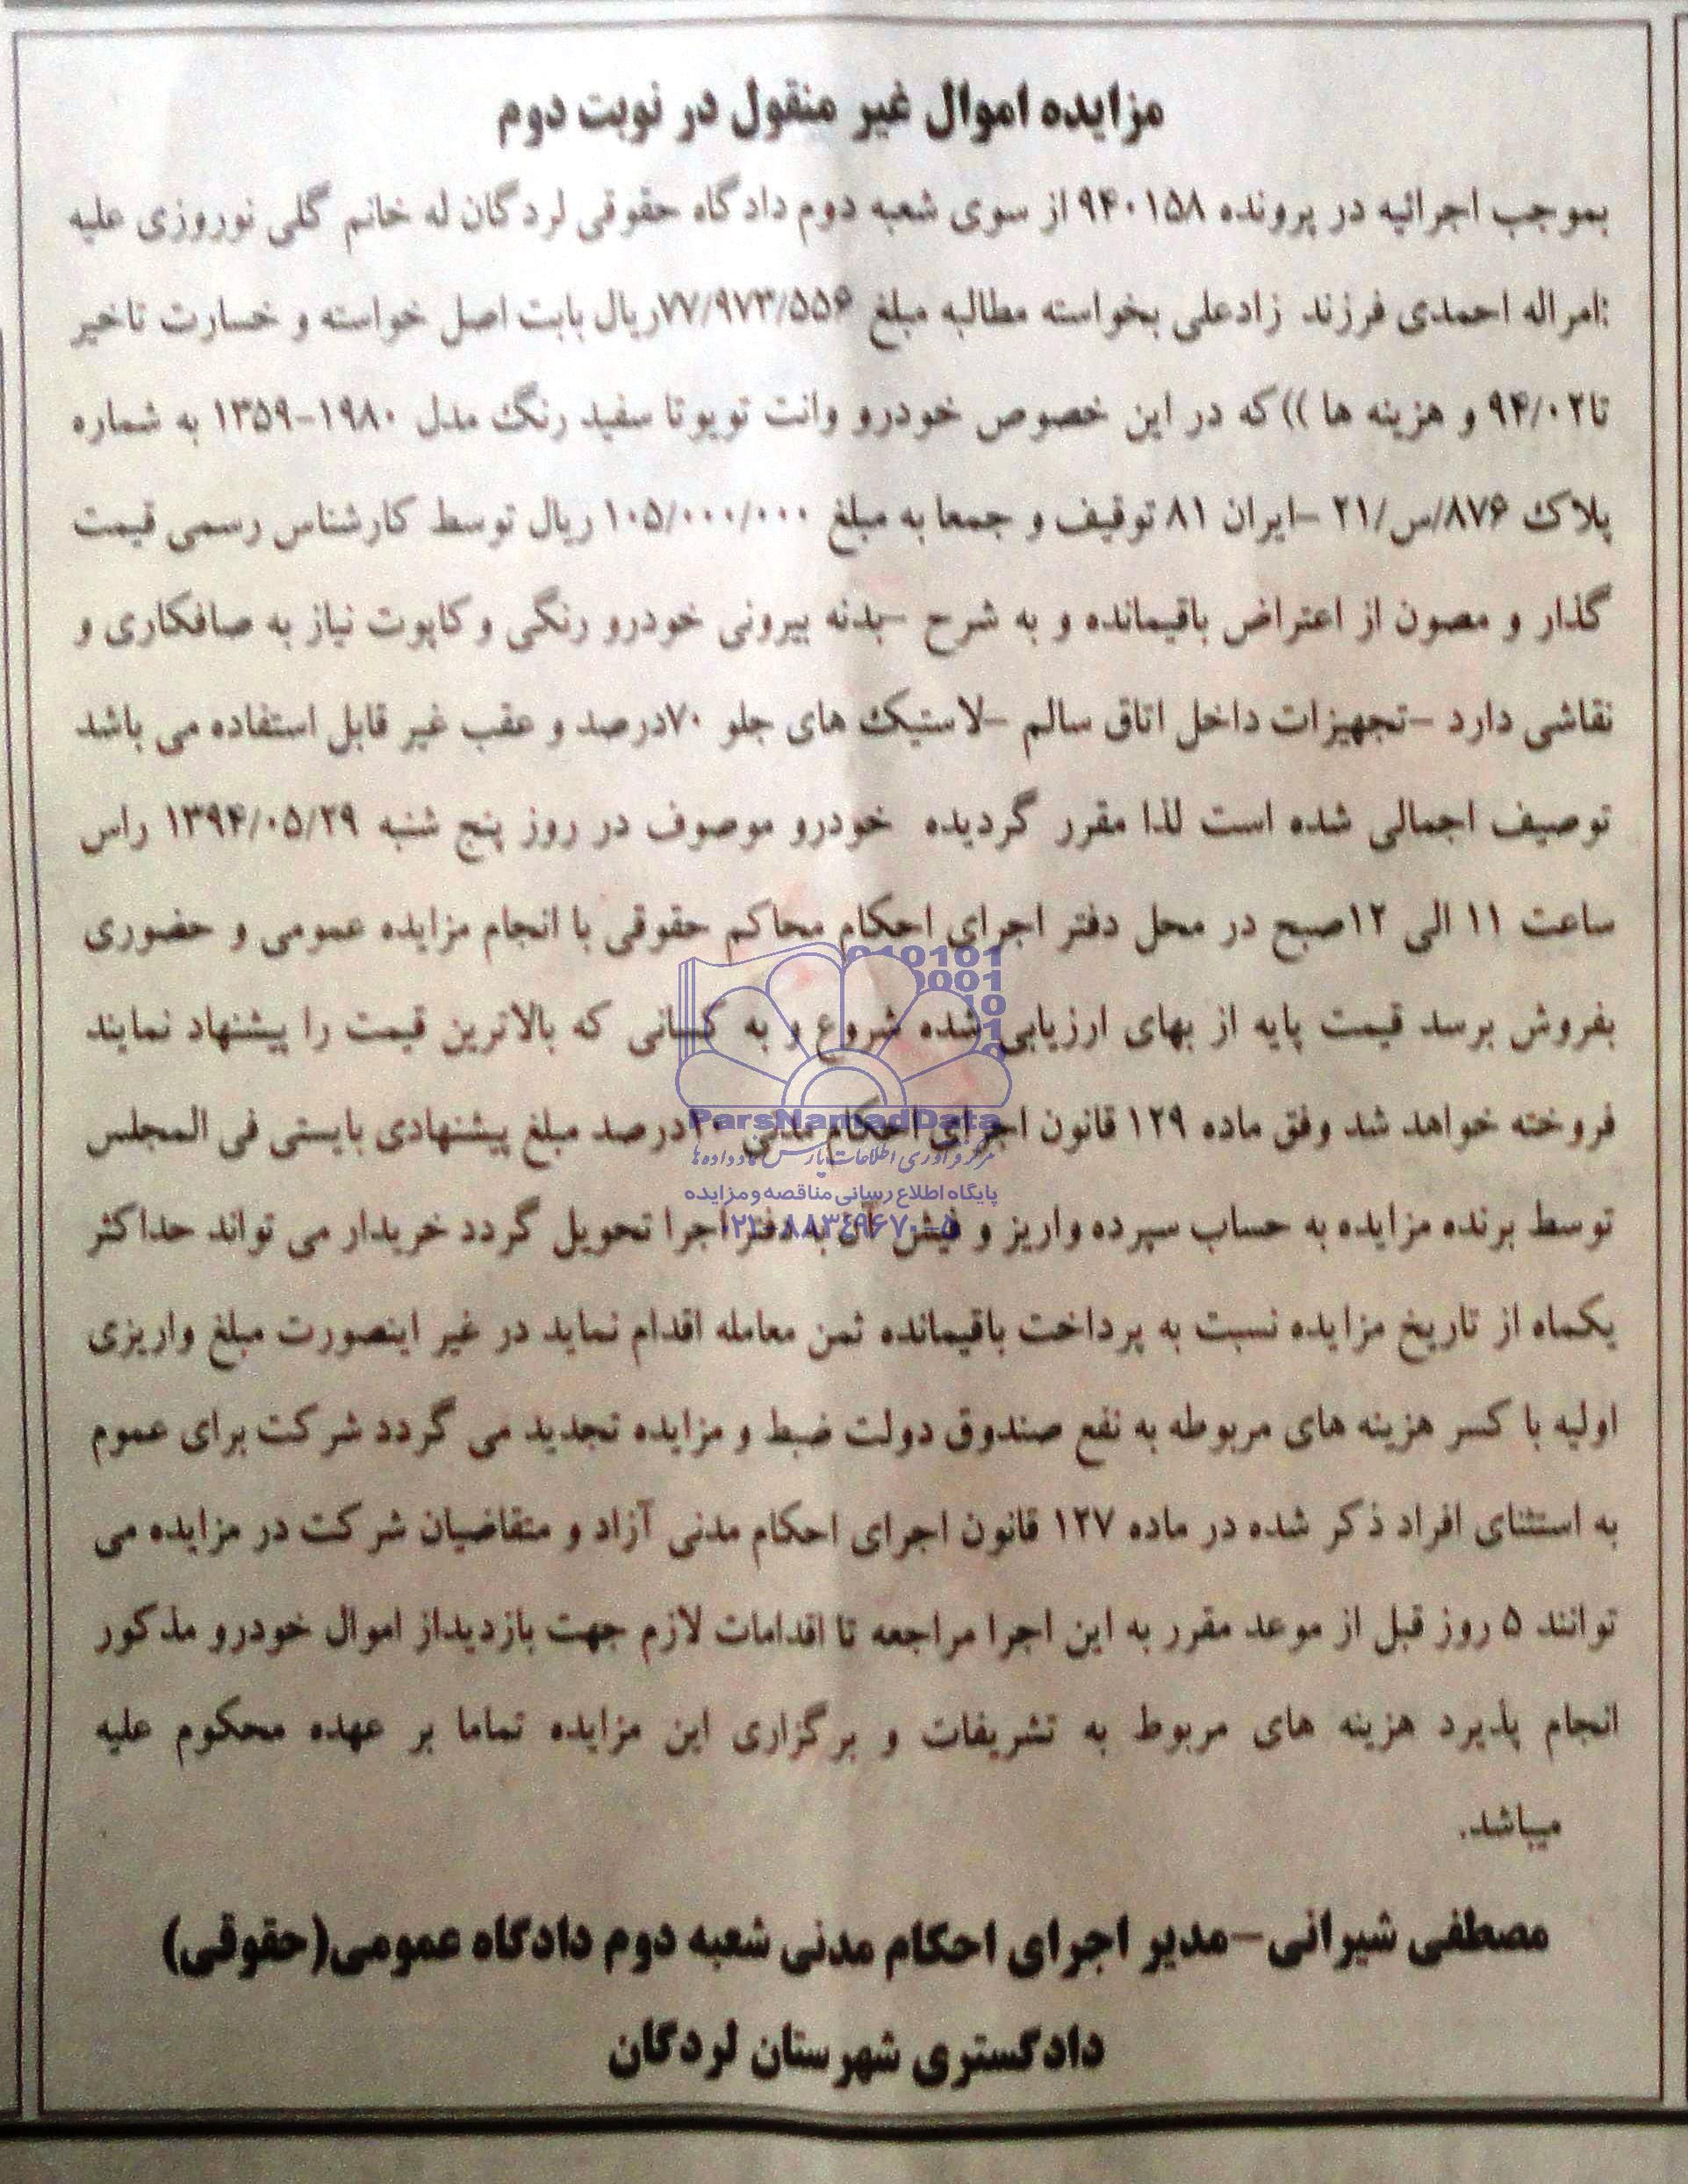 مزایده اموال غیر منقول در نوبت دوم
بموجب اجرائیه در پرونده ۹۴۰۱۵۸ از سوی شعبه دوم دادگاه حقوقی لردگان له خانم گلی نوروزی علیه
:امراله احمدی فرزند زادعلی بخواسته مطالبه مبلغ ۷۷/۹۷۳/۵۵۶ریال بابت اصل خواسته و خسارت تاخیر
تا۹۴/۰۲ و هزینه ها ))که در این خصوص خودرو وانت تویوتا سفید رنگ مدل ۱۹۸۰-۱۳۵۹ به شماره
پلاک ۸۷۶/س/۲۱ -ایران ۸۱ توقیف و جمعا به مبلغ ۱۰۵/۰۰۰/۰۰۰ ریال توسط کارشناس رسمی قیمت
گذار و مصون از اعتراض باقیمانده و به شرح -بدنه بیرونی خودرو رنگی و کاپوت نیاز به صافکاری و
نقاشی دارد -تجهیزات داخل اتاق سالم -لاستیک های جلو ۷۰درصد و عقب غیر قابل استفاده می باشد
توصیف اجمالی شده است لذا مقرر گردیده خودرو موصوف در روز پنج شنبه ۱۳۹۴/۰۵/۲۹ راس
ساعت ۱۱ الی ۱۲صبح در محل دفتر اجرای احکام محاکم حقوقی با انجام مزایده عمومی و حضوری
بفروش برسد قیمت پایه از بهای ارزیابی شده شروع و به کسانی که بالاترین قیمت را پیشنهاد نمایند
فروخته خواهد شد وفق ماده ۱۲۹ قانون اجرای احکام مدنی ۱۰درصد مبلغ پیشنهادی بایستی فی المجلس
توسط برنده مزایده به حساب سپرده واریز و فیش آن به دفتر اجرا تحویل گردد خریدار می تواند حداکثر
یکماه از تاریخ مزایده نسبت به پرداخت باقیمانده ثمن معامله اقدام نماید در غیر اینصورت مبلغ واریزی
اولیه با کسر هزینه های مربوطه به نفع صندوق دولت ضبط و مزایده تجدید می گردد شرکت برای عموم
به استثنای افراد ذکر شده در ماده ۱۲۷ قانون اجرای احکام مدنی آزاد و متقاضیان شرکت در مزایده می
توانند ۵ روز قبل از موعد مقرر به این اجرا مراجعه تا اقدامات لازم جهت بازدیداز اموال خودرو مذکور
انجام پذیرد هزینه های مربوط به تشریفات و برگزاری این مزایده تماما بر عهده محکوم علیه
میباشد.
مصطفی شیرانی-مدیر اجرای احکام مدنی شعبه دوم دادگاه عمومی(حقوقی)
دادگستری شهرستان لردگان
ParsNamadData
مرکز فرآوری اطلاعات پارس نماد داده ها
پایگاه اطلاع رسانی مناقصه و مزایده
۰۲۱-۸۸۳۴۹۶۷۰-۵